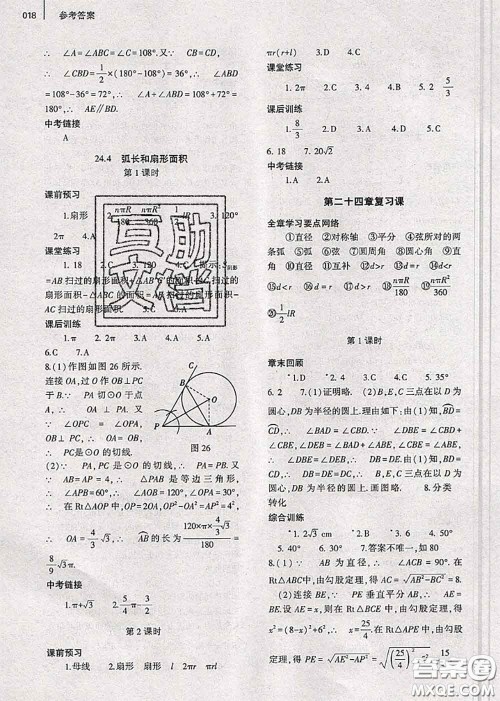 018 参考答案
∴ ∠A=∠ABC=∠C=108°.又∵ CB=CD, ∴
∠CBD=1/2×(180°-108°)=36°, ∴ ∠ABD
=108°-36°=72°, ∴ ∠A+∠ABD=108°+72°=
180°, ∴ AE∥BD.
中考链接
A
24.4 弧长和扇形面积
第1课时
课前预习
1.扇形 nπR/180 nπR²/360 1/2 lR 3.120°
2π 4.A
课堂练习
1.18 3.120
=AB扫过的扇形面积+
扇形面积-△ABC的面积=AB扫过的扇形面积-
AC扫过的扇形面积.
课后训练
4.A 5.C
6.C 7.A
8.(1)作图如图26所示.
连接OA,过O作OB⊥PC
于B.∵ PA与⊙O相切于
点A, ∴ OA⊥PA.又∵
∠OPC=∠OPA,
OB⊥PC, ∴ OA=OB,
即PC与⊙O相切.
图26
(2)∵ PA,PC是⊙O的切线, ∴ PA=PB.又∵
AB=AP=4, ∴ △PAB是等边三角形, ∴
∠APB=60°, ∴ ∠AOB=120°, ∠OPA=30°.
在Rt△AOP中,OP=2OA,OP²=OA²+AP²,
∴ OA=4/3√3, ∴ AB的长为 120×π×4/3√3 / 180 =
8/9√3π.
中考链接
1.π+√3 2.5/4π 3.4/3π-√3
第2课时
课前预习
1.母线 2.扇形 扇形 l 2πr πrl
πr(r+l) 3.D 4.C
课堂练习
1.2π 2.C 3.B 4.C 5.5/3
课后训练
1.8/3 2.B 3.D 4.A 5.D
6.18 7.20√2
中考链接
1.A 2.A
第二十四章复习课
全章学习要点网络
①直径 ②对称轴 ③平分 ④弦所对的两
条弧 ⑤弧 ⑥弦 ⑦圆周角 ⑧圆心角 ⑨直
角 ⑩直径 ⑪互补 ⑫d>r ⑬d=r ⑭d<r
⑮d<r ⑯d=r ⑰d>r ⑱nπR/180 ⑲nπR²/360
⑳1/2 lR
第1课时
章末回顾
1.D 2.C 3.C 4.C 5.35°
6.2 7.(1)证明略. (2)B,E,C三点在以D为
圆心,DB为半径的圆上.理由如下:由(1)知,BD=
CD, ∴ ∠BAD=∠CBD. ∵ ∠DBE=∠CBD+
∠CBE, ∠DEB=∠BAD+∠ABE, ∠CBE=
∠ABE, ∴ ∠DBE=∠DEB, ∴ DB=DE.由
(1)知,BD=CD, ∴ B,E,C三点在以D为圆
心,DB为半径的圆上.图略. 8.分类
转化
综合训练
1.2√3 cm 2.B 3.B 4.90°
5.40° 6.50° 7.答案不唯一,如80
8.(1)∵ AB是直径, ∴ ∠ACB=90°. 在
Rt△ABC中,由勾股定理,得AC=√(AB²-BC²)=8.
(2)连接BE. ∵ PE垂直平分AB, ∴ AE=
BE.设AE=x,则在Rt△BCE中,由勾股定理,得
x²=(8-x)²+6², ∴ x=25/4. 在Rt△APE中,由勾股
定理,得PE=√(AE²-AP²)=√((25/4)²-5²)=15/4
答案圈
MXQE.COM